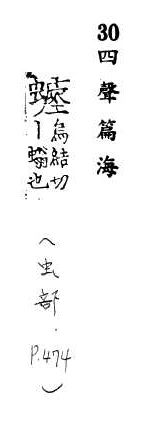 30四聲篇海
烏結切
丨螉也
（虫部．P.474）